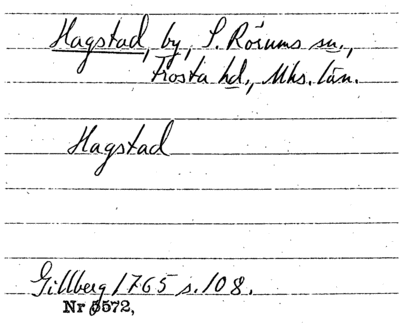 Hagstad, by, S. Rörums sn.,
Frosta hd., Mhs. län.
Hagstad
Gillberg 1765 s. 108.
Nr 5572,